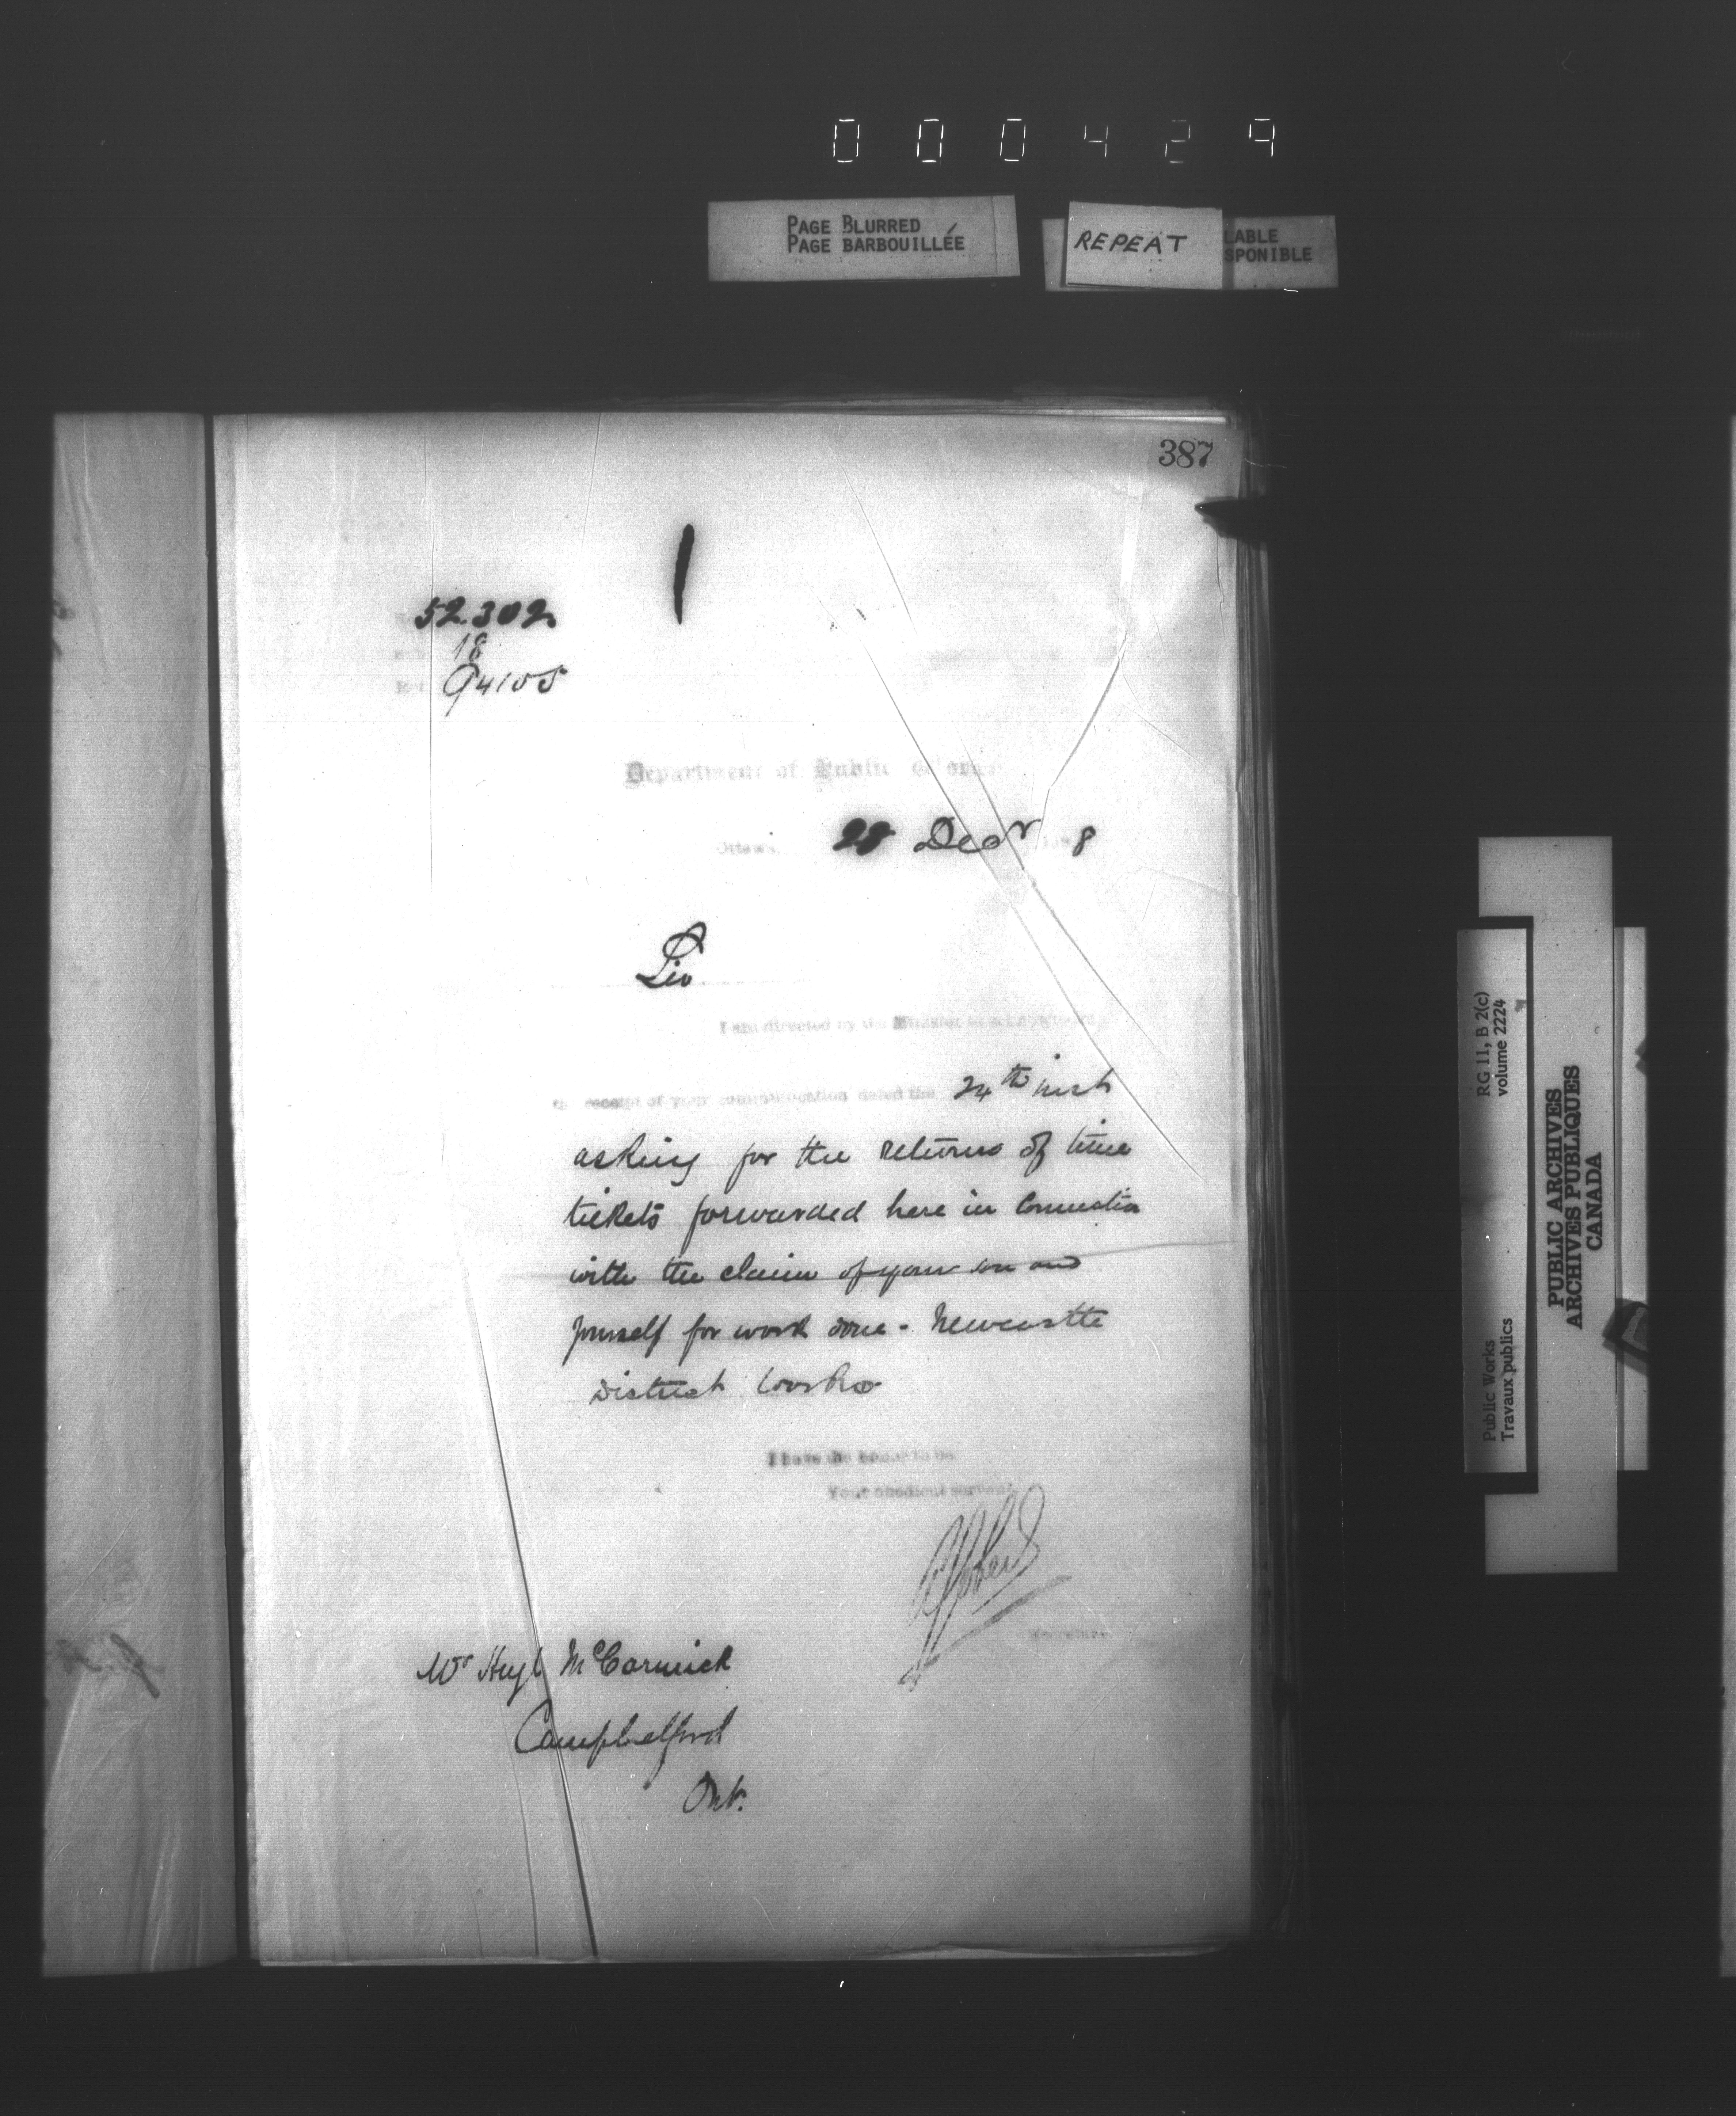 000429
PAGE BLURRED
PAGE BARBOUILLÉE
REPEAT
LABLE
SPONIBLE
387
52302
18
94105
Department of Public Works
Ottawa, 28 Decr 8
Sir
I am directed by the Minister to acknowledge
the receipt of your communication dated the 24th inst
asking for the returns of time
tickets forwarded here in connection
with the claim of your son and
yourself for work done - Newcastle
District works
I have the honor to be
Your obedient servant
Secretary
Mr Hugh McCormick
Campbelford
Ont.
RG 11, B 2(c)
volume 2224
Public Works
Travaux publics
PUBLIC ARCHIVES
ARCHIVES PUBLIQUES
CANADA